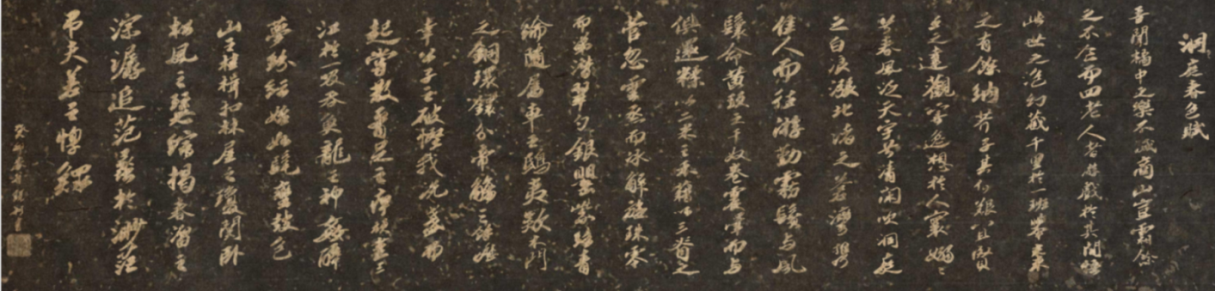 洞庭春色賦
吾聞橘中之樂不減商山豈霜餘
之不食而四老人者游戲於其間悟
此世之泡幻藏千里於一斑舉棗葉
之有餘納芥子其何艱宜賢
王之達觀寄逸想於人寰嫋嫋
兮春風泛天宇兮清閑吹洞庭
之白浪漲北渚之蒼灣攜
佳人而往游勤霧鬢與風
鬟命黃頭之千奴卷震澤而與
俱還糅以二米之禾藉以三脊之
菅忽雲烝而冰解旋珠零
而涕潸翠勺銀罌紫絡青
綸隨屬車之鴟夷款木門
之銅鐶分帝觴之餘瀝
幸公子之破慳我洗盞而
起嘗散腰足之痹頑盡三
江於一吸吞魚龍之神姦醉
夢紛紜始如髦蠻鼓包
山之桂楫扣林屋之瓊關臥
松風之瑟縮揭春溜之
淙潺追范蠡於渺茫
弔夫差之惸鰥